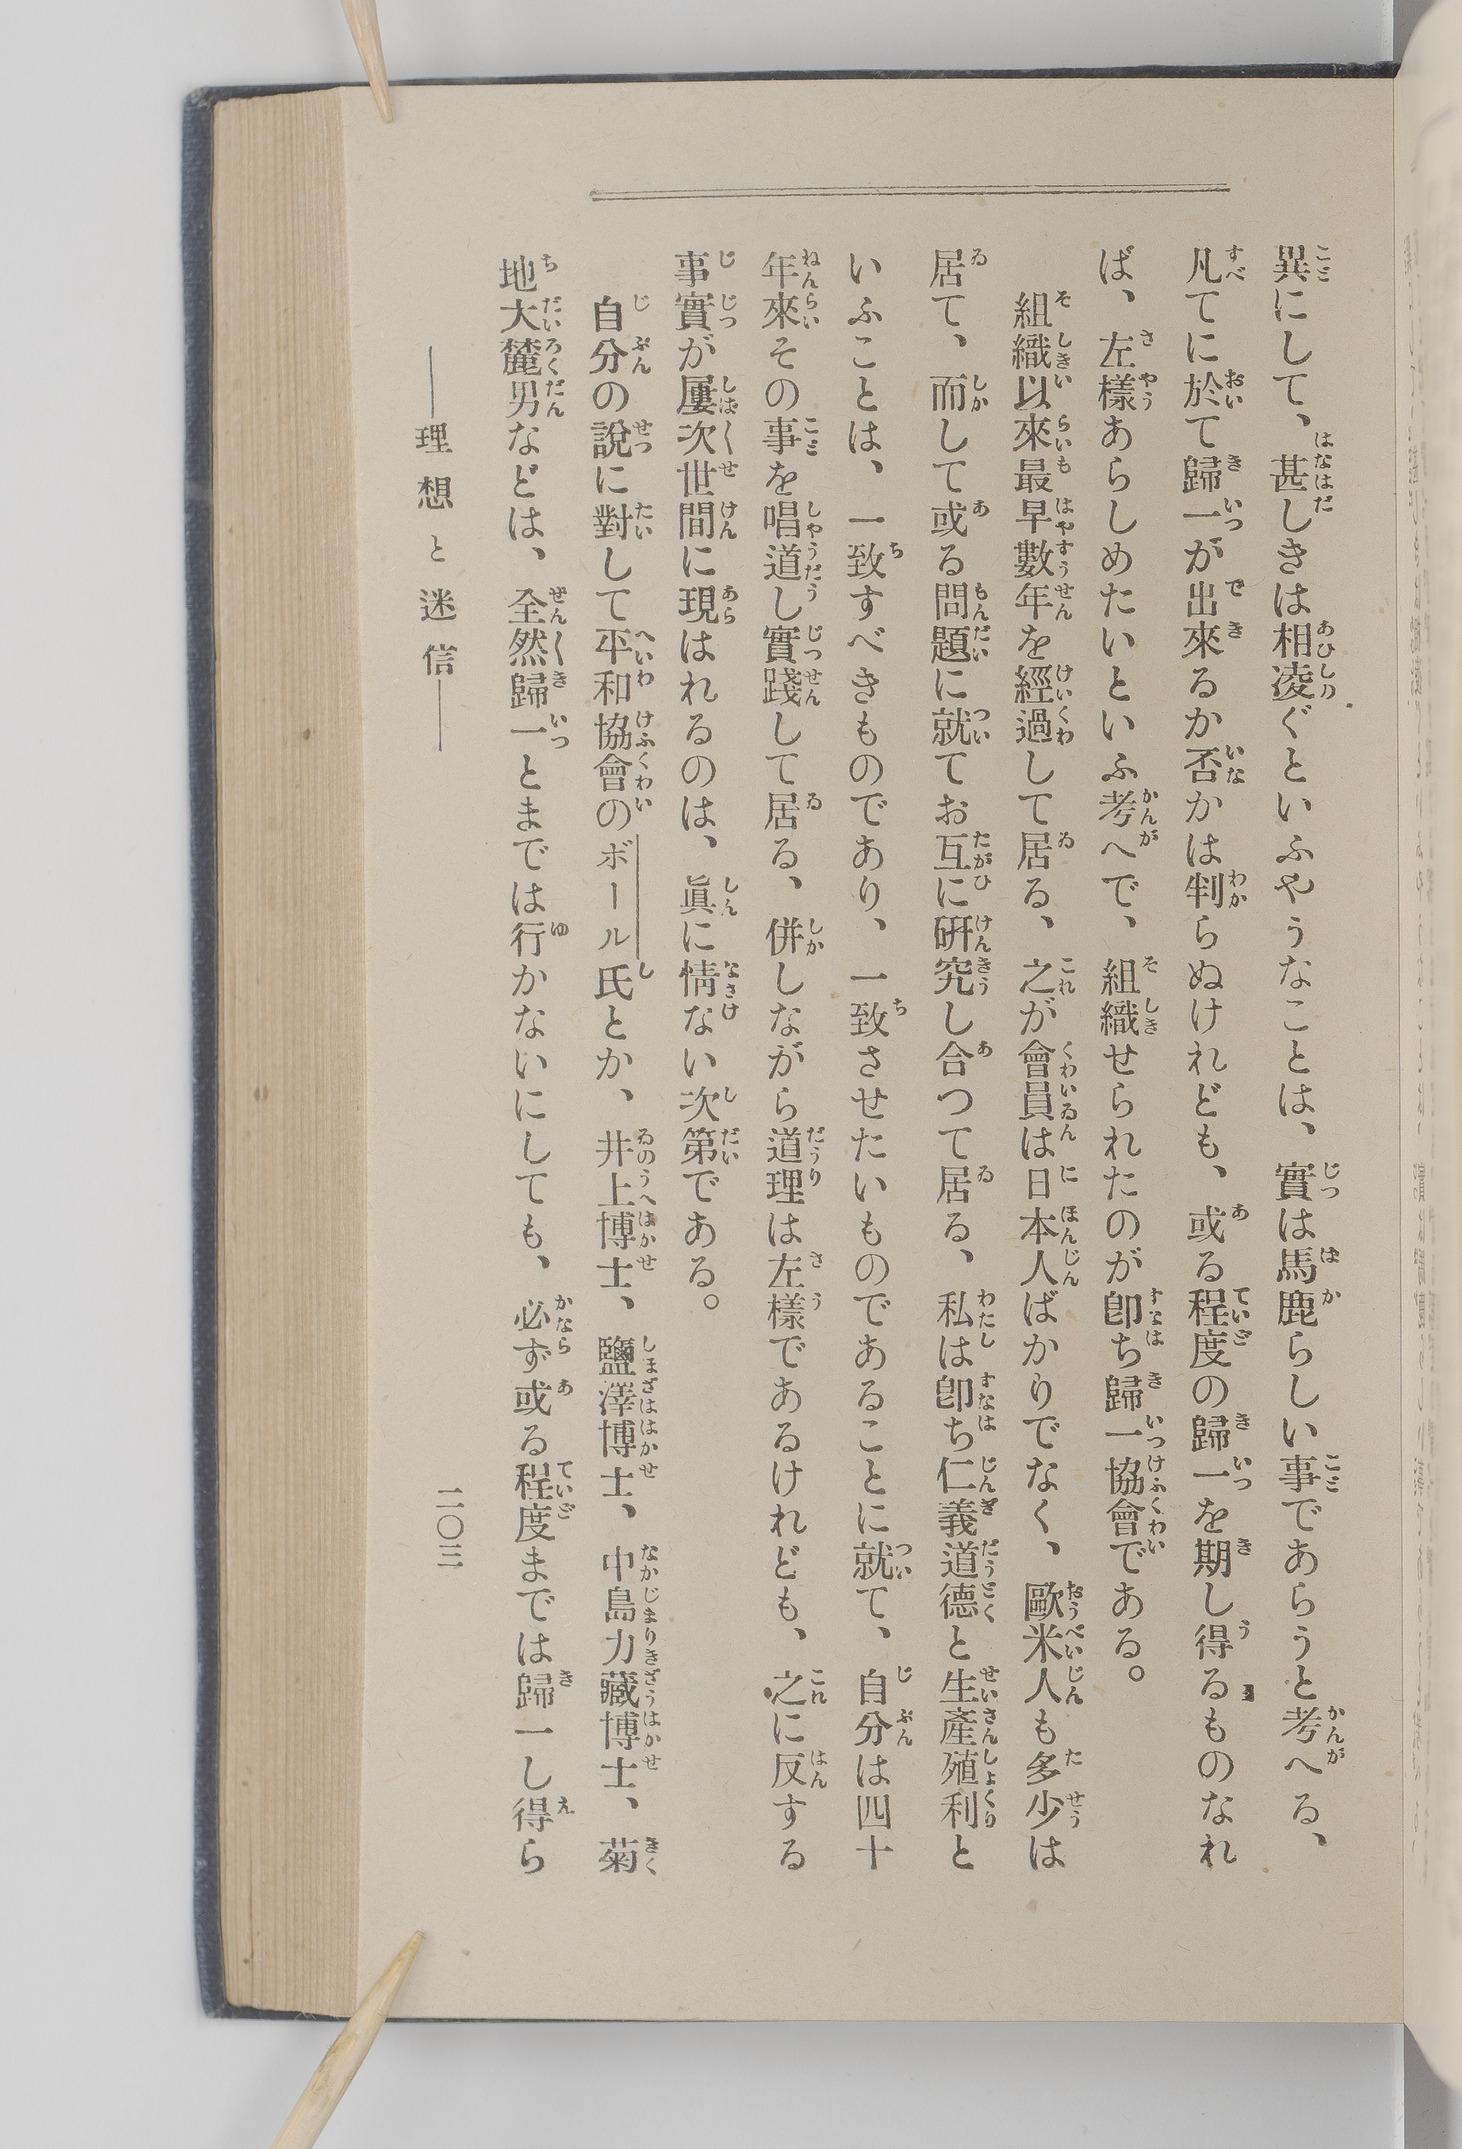 異にして、甚しきは相凌ぐといふやうなことは、實は馬鹿らしい事であらうと考へる、
凡てに於て歸一が出來るか否かは判らぬけれども、或る程度の歸一を期し得るものなれ
ば、左樣あらしめたいといふ考へで、組織せられたのが卽ち歸一協會である。
組織以來最早數年を經過して居る、之が會員は日本人ばかりでなく、歐米人も多少は
居て、而して或る問題に就てお互に硏究し合つて居る、私は卽ち仁義道德と生產殖利と
いふことは、一致すべきものであり、一致させたいものであることに就て、自分は四十
年來その事を唱道し實踐して居る、併しながら道理は左樣であるけれども、之に反する
事實が屢次世間に現はれるのは、眞に情ない次第である。
自分の說に對して平和協會のボール氏とか、井上博士、鹽澤博士、中島力藏博士、菊
地大麓男などは、全然歸一とまでは行かないにしても、必ず或る程度までは歸一し得ら
―理想と迷信―
二〇三